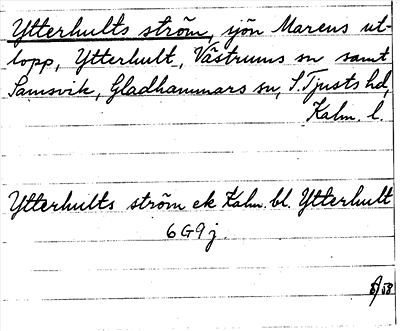 Ytterhults ström, sjön Marens ut-
lopp, Ytterhult, Västrums sn samt
Samsvik, Gladhammars sn, S. Tjusts hd,
Kalm. l.
Ytterhults ström ek Kalm. bl. Ytterhult
6G9j.
58